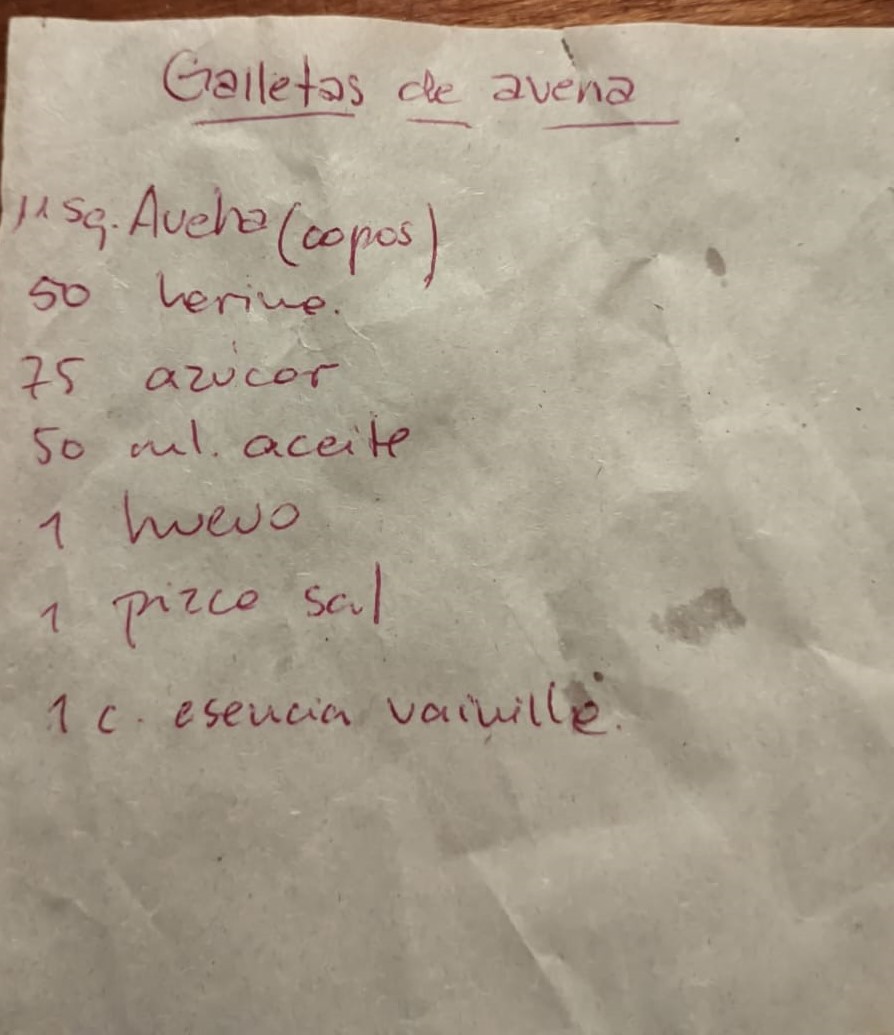 Galletas de avena
115g. Avena (copos)
50 harina.
75 azúcar
50 ml. aceite
1 huevo
1 pizca sal
1 c. esencia vainilla.